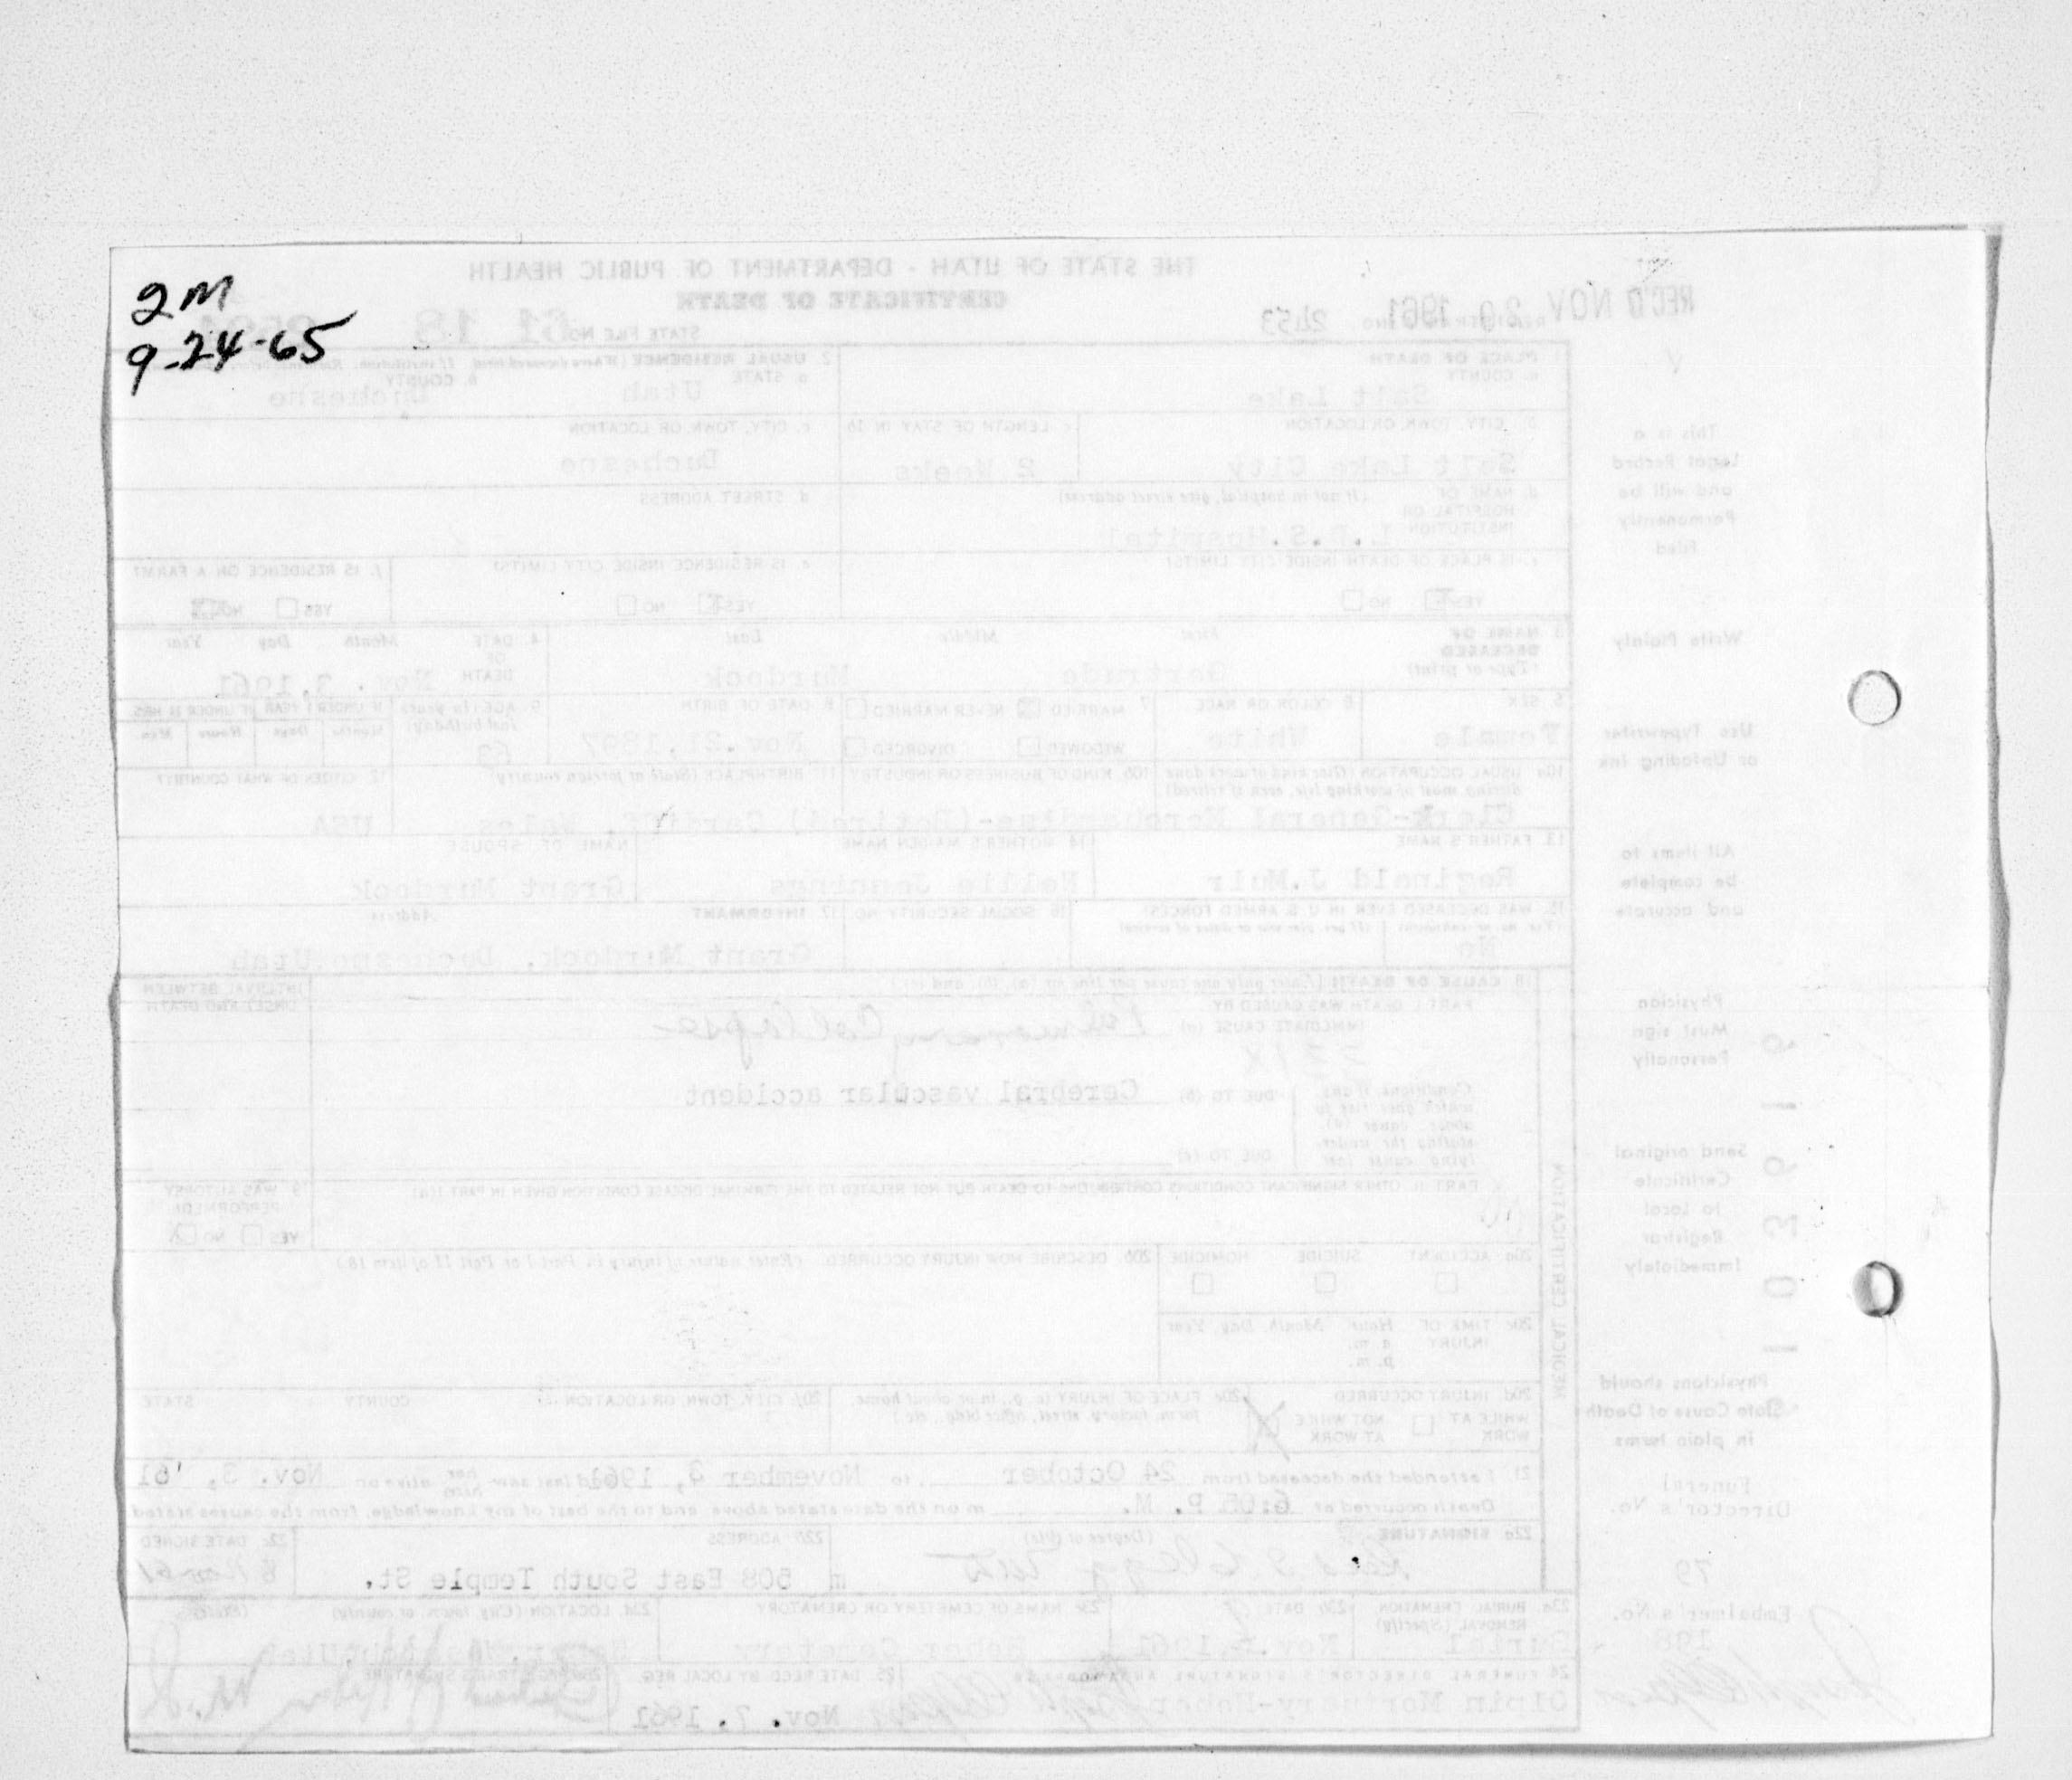 2M
9-24-65
REC'D NOV 20 1961
THE STATE OF UTAH - DEPARTMENT OF PUBLIC HEALTH
CERTIFICATE OF DEATH
2453
STATE FILE NO. 61 18
1. PLACE OF DEATH
a. COUNTY
Salt Lake
2. USUAL RESIDENCE
a. STATE
Utah
b. COUNTY
Duchesne
b. CITY, TOWN, OR LOCATION
Salt Lake City
c. LENGTH OF STAY IN 1b
2 Weeks
c. CITY, TOWN, OR LOCATION
Duchesne
d. NAME OF HOSPITAL OR INSTITUTION
(If not in hospital, give street address)
L.D.S. Hospital
d. STREET ADDRESS
e. IS PLACE OF DEATH INSIDE CITY LIMITS?
YES NO
e. IS RESIDENCE INSIDE CITY LIMITS?
YES NO
f. IS RESIDENCE ON A FARM?
YES NO
3. NAME OF DECEASED
(Type or print)
First Middle Last
Gertrude Murdock
4. DATE OF DEATH
Month Day Year
Nov. 3, 1961
5. SEX
Female
6. COLOR OR RACE
White
7. MARRIED NEVER MARRIED
WIDOWED DIVORCED
8. DATE OF BIRTH
9. AGE (In years last birthday)
63
IF UNDER 1 YEAR IF UNDER 24 HRS.
Months Days Hours Min.
10a. USUAL OCCUPATION (Give kind of work done during most of working life, even if retired)
10b. KIND OF BUSINESS OR INDUSTRY
Clerk-General Merchandise-(Retired)
11. BIRTHPLACE (State or foreign country)
Cardiff, Wales
12. CITIZEN OF WHAT COUNTRY?
USA
13. FATHER'S NAME
Reginald J. Muir
14. MOTHER'S MAIDEN NAME
Nellie Jennings
NAME OF SPOUSE
Grant Murdock
15. WAS DECEASED EVER IN U.S. ARMED FORCES?
No
16. SOCIAL SECURITY NO.
17. INFORMANT Address
Grant Murdock, Duchesne, Utah
18. CAUSE OF DEATH (Enter only one cause per line for (a), (b), and (c).)
INTERVAL BETWEEN ONSET AND DEATH
PART I. DEATH WAS CAUSED BY
IMMEDIATE CAUSE (a) Pulmonary Collapse
Conditions, if any, which gave rise to above cause (a), stating the underlying cause last
DUE TO (b) Cerebral vascular accident
DUE TO (c)
PART II. OTHER SIGNIFICANT CONDITIONS CONTRIBUTING TO DEATH BUT NOT RELATED TO THE TERMINAL DISEASE CONDITION GIVEN IN PART I(a)
19. WAS AUTOPSY PERFORMED?
YES NO
20a. ACCIDENT SUICIDE HOMICIDE
20b. DESCRIBE HOW INJURY OCCURRED. (Enter nature of injury in Part I or Part II of item 18.)
20c. TIME OF INJURY Hour Month, Day, Year
a.m.
p.m.
20d. INJURY OCCURRED
WHILE AT WORK NOT WHILE AT WORK
20e. PLACE OF INJURY (e.g., in or about home, farm, factory, street, office bldg., etc.)
20f. CITY, TOWN, OR LOCATION COUNTY STATE
MEDICAL CERTIFICATION
21. I attended the deceased from 24 October to November 3, 1961 and last saw her alive on Nov. 3, '61
Death occurred at 6:05 P. M. m on the date stated above, and to the best of my knowledge, from the causes stated
22a. SIGNATURE (Degree or title)
22b. ADDRESS
508 East South Temple St.
22c. DATE SIGNED
8 Nov 61
23a. BURIAL, CREMATION, REMOVAL (Specify)
Burial
23b. DATE
23c. NAME OF CEMETERY OR CREMATORY
Heber Cemetery
23d. LOCATION (City, town, or county) (State)
24. FUNERAL DIRECTOR'S SIGNATURE AND ADDRESS
Olpin Mortuary-Heber
25. DATE REC'D BY LOCAL REG.
Nov. 7, 1961
REGISTRAR'S SIGNATURE
This is a
Legal Record
and will be
Permanently
Filed
Write Plainly
Use Typewriter
or Unfading Ink
All items to
be complete
and accurate
Physician
Must sign
Personally
Send original
Certificate
to Local
Registrar
Immediately
Physicians should
State Cause of Death
in plain terms
Funeral
Director's No.
79
Embalmer's No.
198